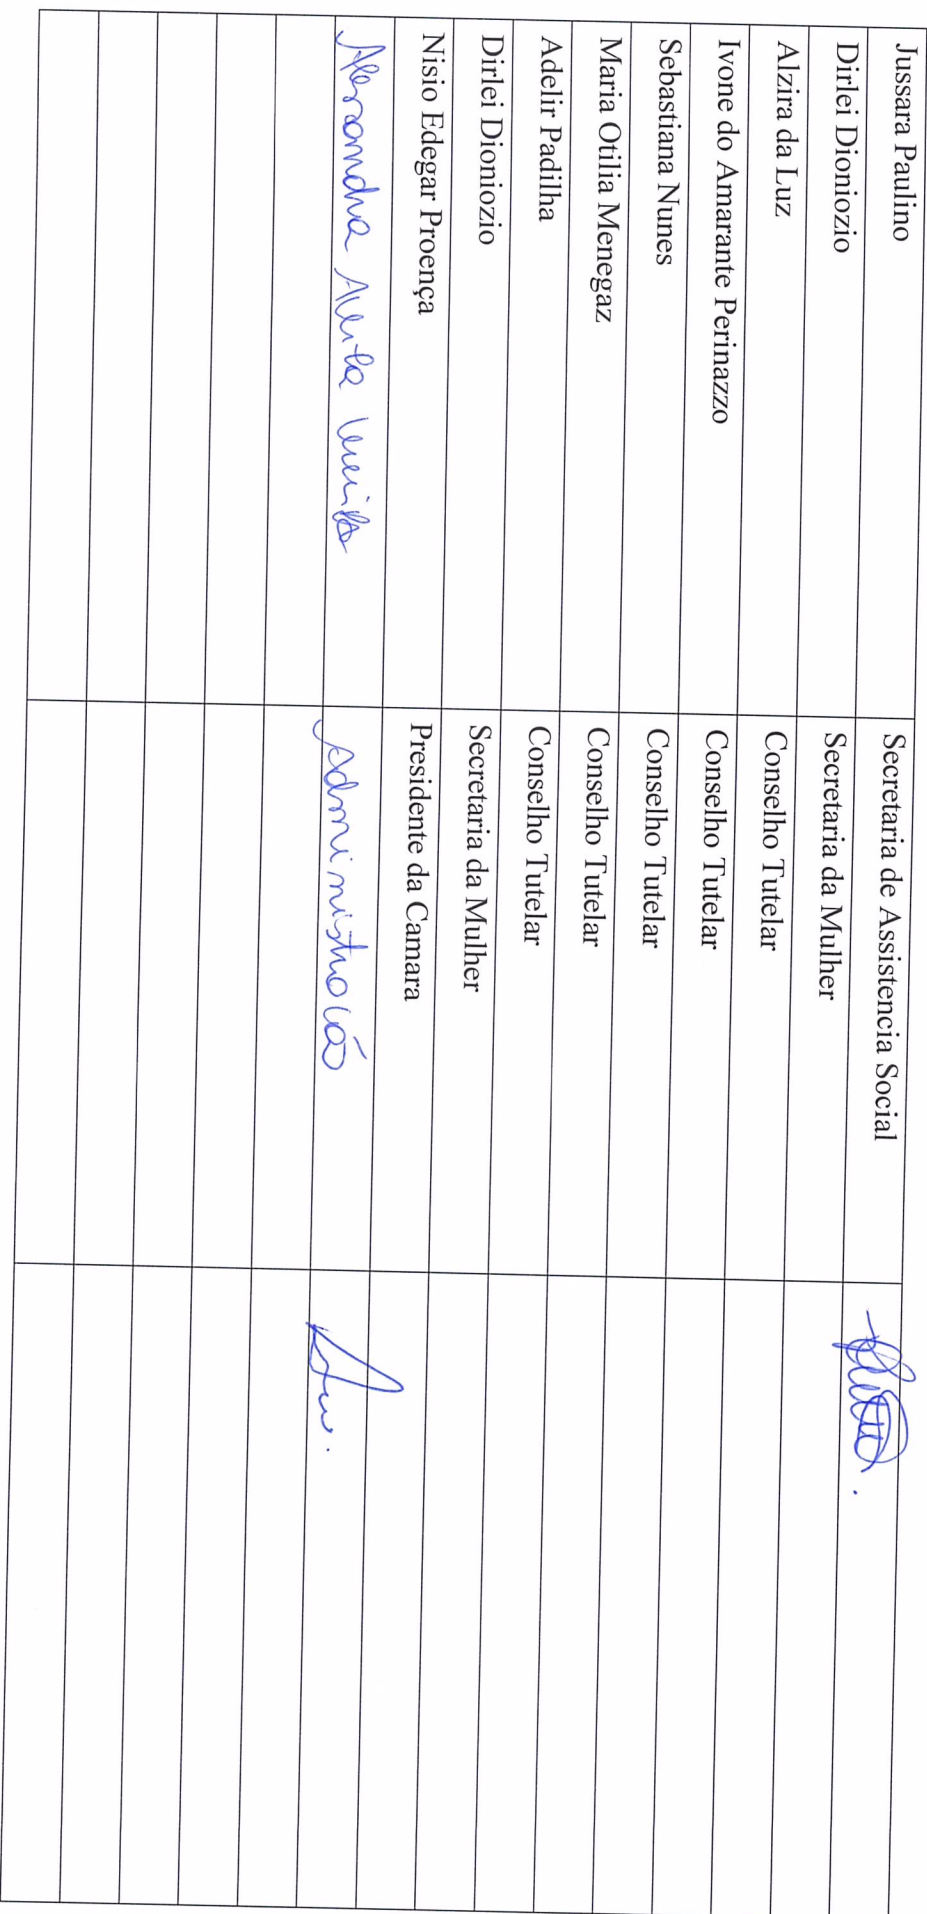 Jussara Paulino Secretaria de Assistencia Social
Dirlei Dioniozio Secretaria da Mulher
Alzira da Luz Conselho Tutelar
Ivone do Amarante Perinazzo Conselho Tutelar
Sebastiana Nunes Conselho Tutelar
Maria Otilia Menegaz Conselho Tutelar
Adelir Padilha Conselho Tutelar
Dirlei Dioniozio Secretaria da Mulher
Nisio Edegar Proença Presidente da Camara
Administração